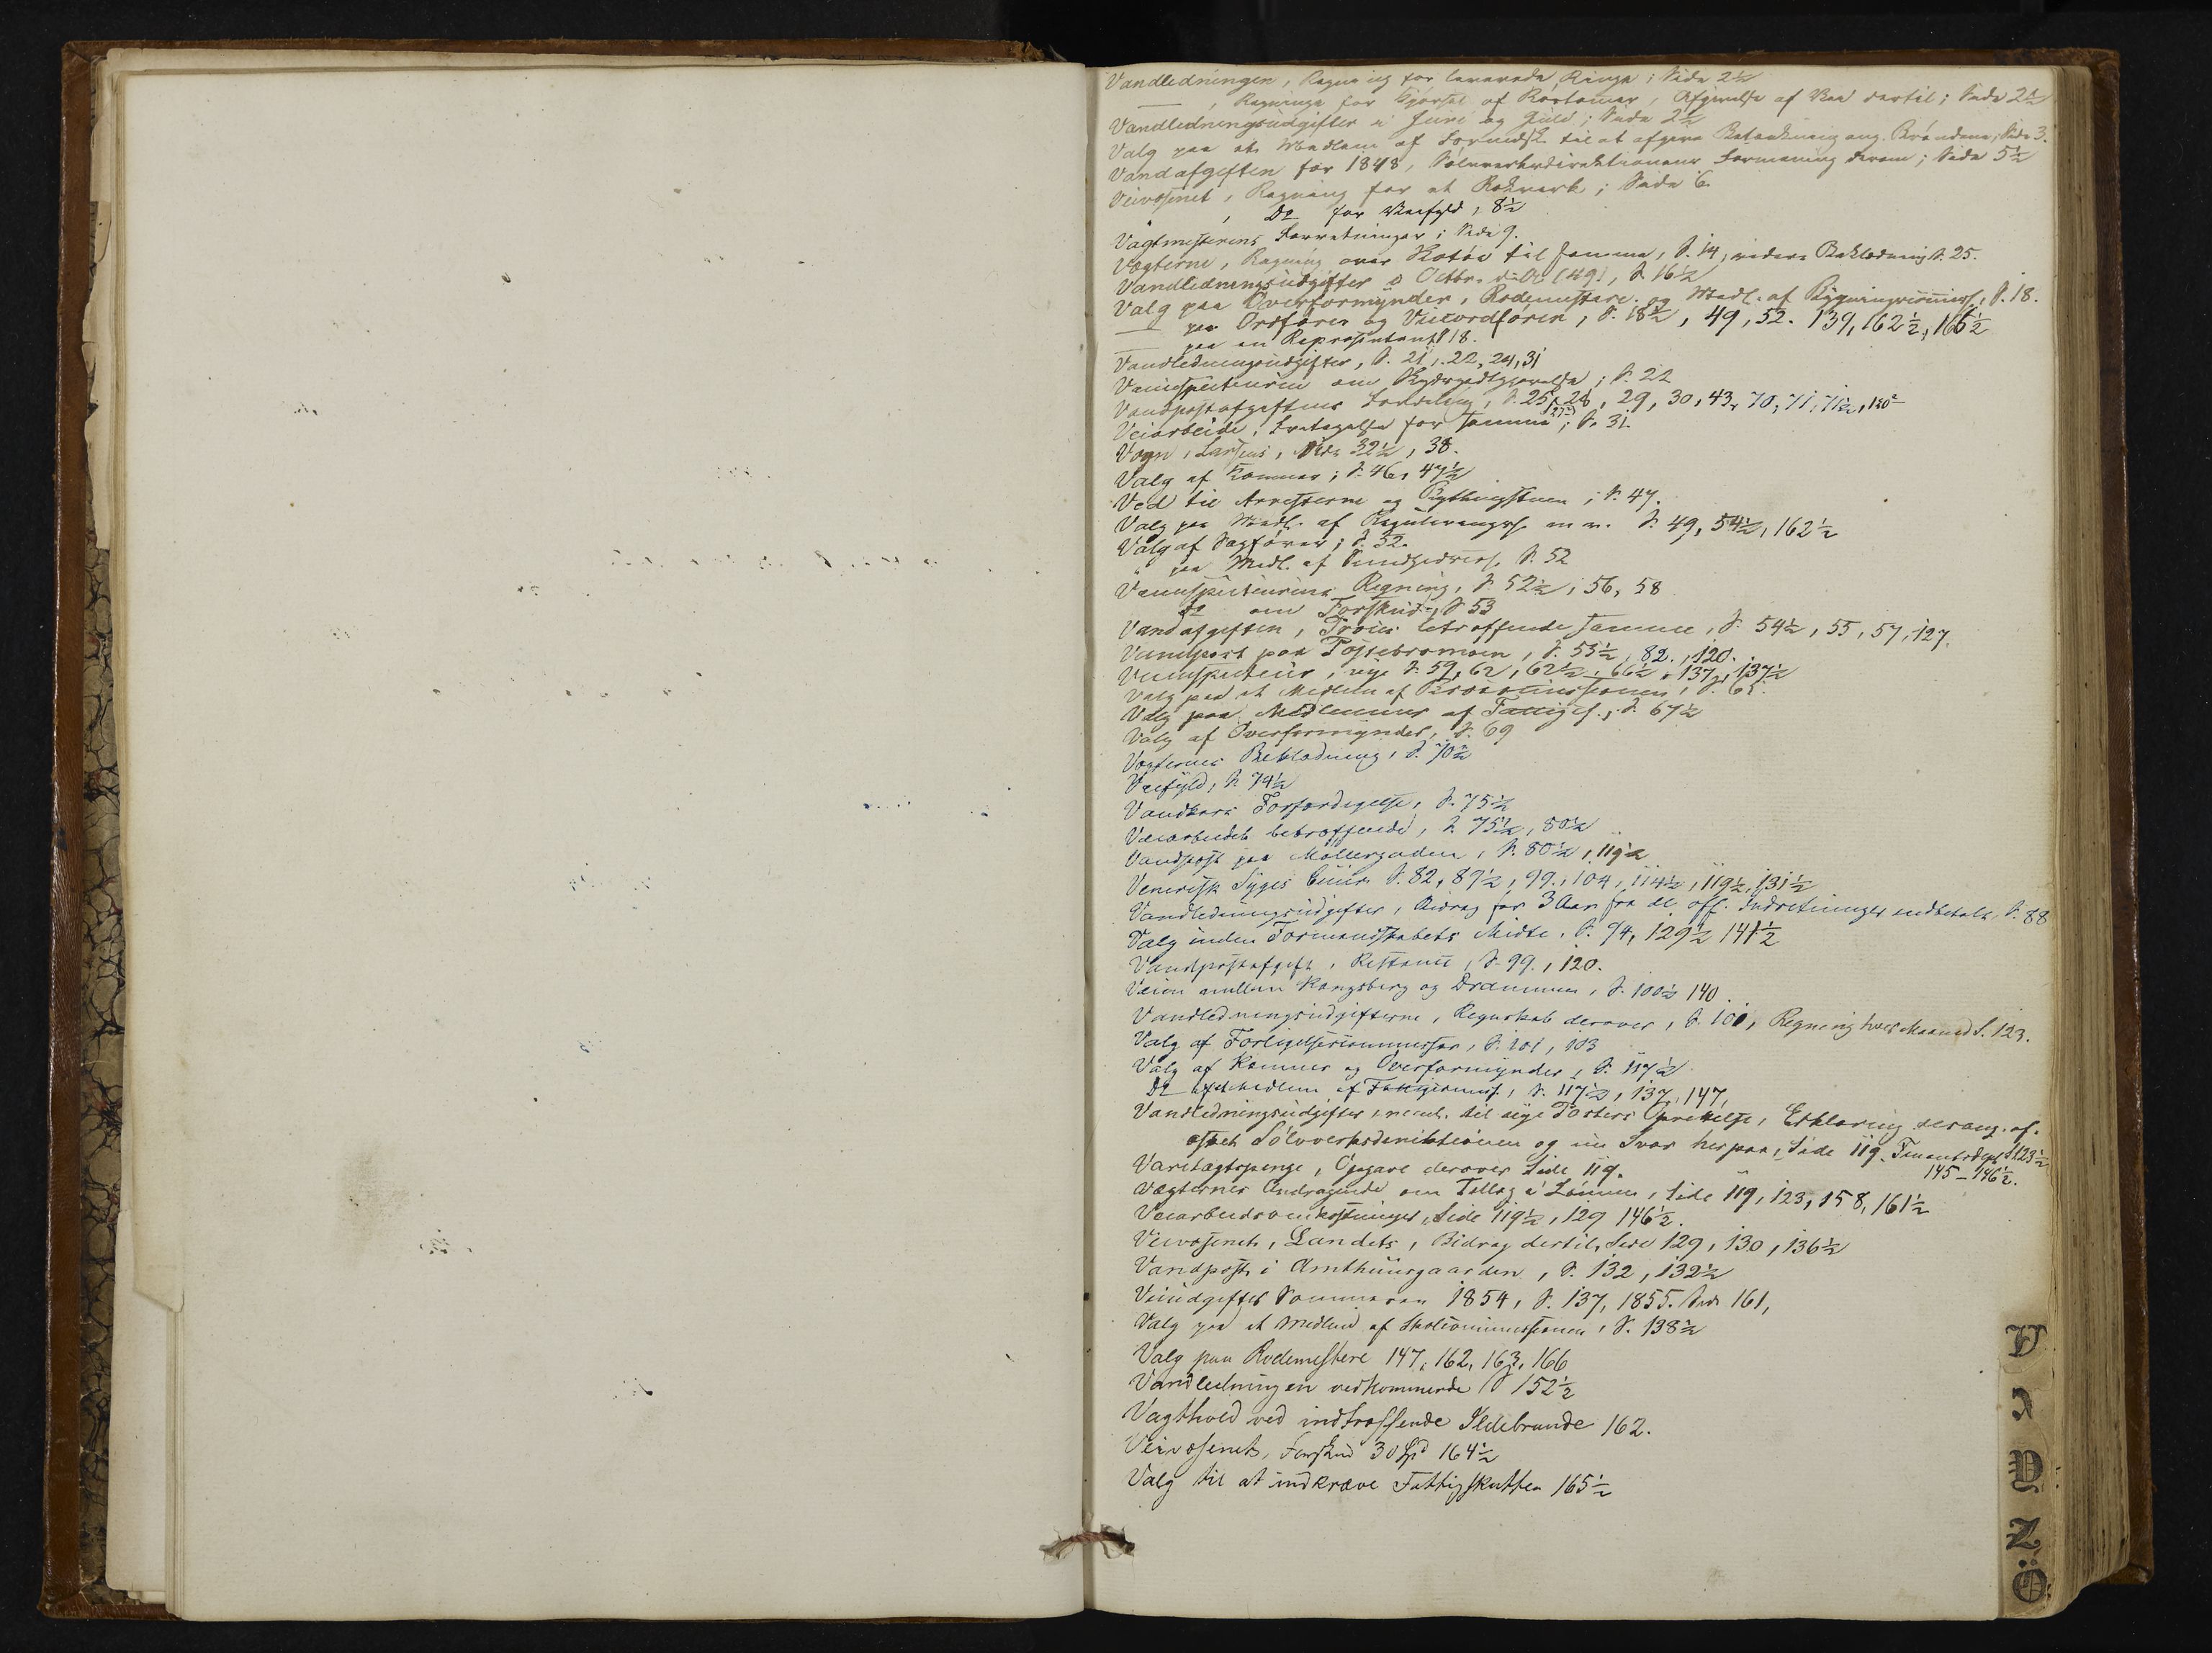 Vandledningen, Regning for leverede Ringe; Side 2½
—, Regninger for Kjørsel af Rørtømmer, Afgivelse af Ved dertil; Side 2½
Vandledningsudgifter i Juni og Juli; Side 2½
Valg paa et Medlem af Formdsk. til at afgive Betænkning ang. Brøndene; Side 3.
Vandafgiften for 1848, Sølvverksdirektionens Formening derom; Side 5½
Veivæsenet, Regning for et Rækverk; Side 6.
" , Do for Veifyld, 8½
Vagtmesterens Forretninger; Side 9.
Vægterne, Regning over Skotøi til samme, S. 14, videre Beklædning S. 25.
Vandledningsudgifter i Octbr. (49), S. 16½
Valg paa Overformynder, Rodemestere og Medl. af Bygningscommiss., S. 18.
— paa Ordfører og Viceordfører, S. 18½, 49, 52. 139, 162½, 165½
— paa en Repræsentant S 18.
Vandledningsudgifter, S. 21, 22, 24, 31
Veiinspecteuren om Skydsgodtgjørelse; S. 22
Vandpostafgiftens Fordeling, S. 25, 28, 29, 30, 43, 70, 71, 71½, 120
Veiarbeide, Foretagelse for samme; S. 31.
Vogn, Larsens, Side 32½, 38.
Valg af Kæmner; S. 46, 47½
Ved til Arresterne og Bythingstuen; S. 47.
Valg paa Medl. af Reguleringsk. m. v. S. 49, 54½, 162½
Valg af Sagfører; S. 52.
" paa Medl. af Sundhedscom. S. 52
Veiinspecteurens Regning, S. 52½, 56, 58
Do om Forskud, S 53
Vandafgiften, Proces betræffende samme, S. 54½, 55, 57, 127.
Vandpost paa Tostebromoen, S. 55½, 82., 120.
Veiinspecteur, nye S. 59, 62, 62½, 66½, 137, 137½
Valg paa et Medlem af Skolecommissionen, S. 65.
Valg paa Medlemmer af Fattigc., S. 67½
Valg af Overformynder, S. 69
Vægternes Beklædning, S. 70½
Veifyld, S. 74½
Vandkars Forfærdigelse, S. 75½
Veiarbeidet betræffende, S. 75½, 80½
Vandpost paa Møllergaden, S. 80½, 119½
Venerisk Syges Cuur S. 82, 87½, 99, 104, 114½, 119½, 131½
Vandledningsudgifter, Bidrag for 3 Aar fra de off. Indretninger indbetalt, S. 88
Valg inden Formandskabets Midte, S. 94, 129½ 141½
Vandpostafgift, Restance, S. 99., 120.
Veien mellem Kongsberg og Drammen, S. 100½ 140.
Vandledningsudgifterne, Regnskab derover, S. 101, Regning hver Maaned S. 123.
Valg af Forligelsescommissær, S. 101, 103
Valg af Kæmner og Overformynder, S. 117½
Do af et Medlem af Fattigcomss., S. 117½, 137, 147,
Vandledningsudgifter, til nye Posters Oprettelse, Erklæring derang. af-
æsket Sølvverksdirektionen og nu Svar herpaa, Side 119. Finantsdept. S 123½
145–146½.
Varetægtspenge, Opgave derover Side 119.
Vægternes Andragende om Tillæg i Lønnen, Side 119, 123, 158, 161½
Veiarbeidsomkostninger, Side 119½, 129 146½.
Veivæsenet, Landets, Bidrag dertil, Side 129, 130, 136½
Vandpost i Amthuusgaarden, S. 132, 132½
Veiudgifter Sommeren 1854, S. 137, 1855. Side 161,
Valg paa et Medlem af Skolecommissionen, S. 138½
Valg paa Rodemestere 147, 162, 163, 166
Vandledningen vedkommende S 152½
Vagthold ved indtræffende Ildebrande 162.
Veivæsenet, Forskud 30 Spd 164½
Valg til at indkræve Fattigskatten 165½
V
Z
Ö